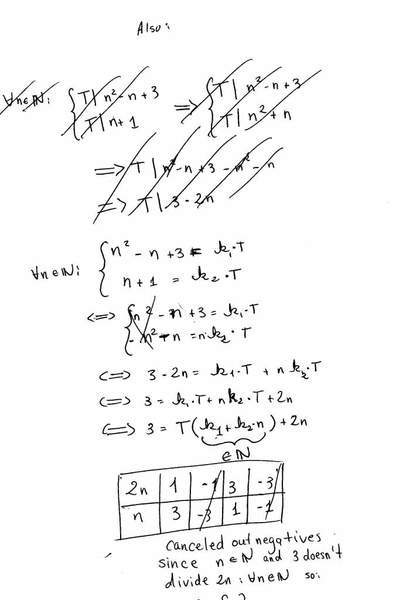 Also:
∀n∈ℕ: { T | n² - n + 3 ⟹ { T | n² - n + 3
T | n + 1 T | n² + n
⟹ T | n² - n + 3 - n² - n
⟹ T | 3 - 2n
∀n∈ℕ: { n² - n + 3 = k₁·T
n + 1 = k₂·T
⟺ { n² - n + 3 = k₁·T
- n² - n = n k₂·T
⟺ 3 - 2n = k₁·T + n k₂·T
⟺ 3 = k₁·T + n k₂·T + 2n
⟺ 3 = T(k₁ + k₂·n) + 2n
∈ℕ
2n | 1 | -1 | 3 | -3
n | 3 | -3 | 1 | -1
Canceled out negatives
since n∈ℕ and 3 doesn't
divide 2n : ∀n∈ℕ so: